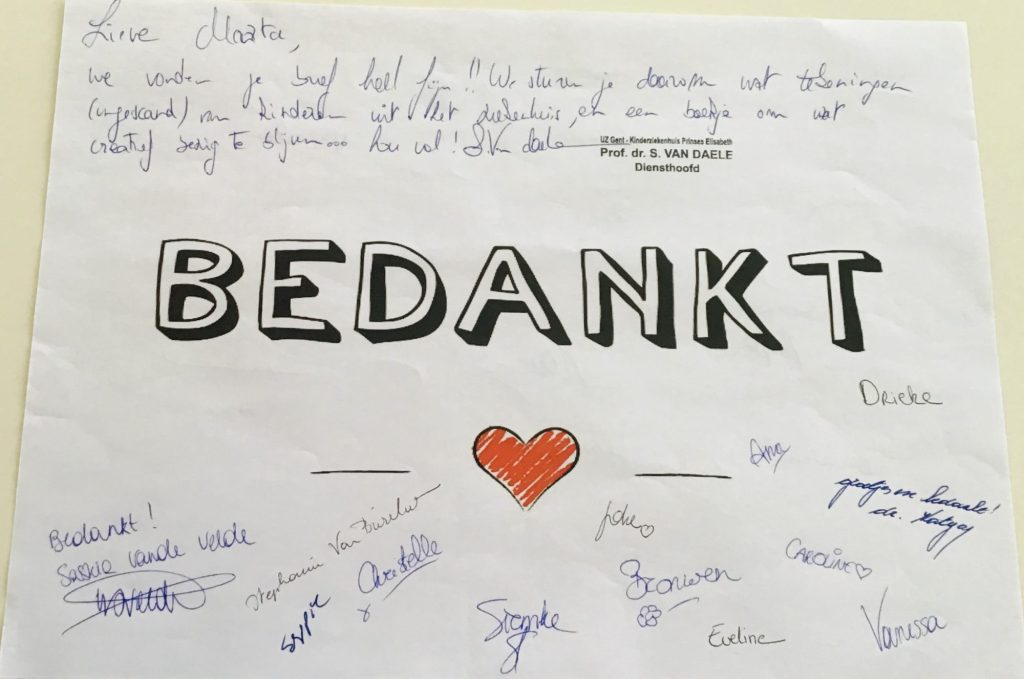 Lieve Maarta,
we vonden je brief heel fijn!! We sturen je daarom wat tekeningen
(ingescand) van kinderen uit het ziekenhuis, en een boekje om wat
creatief bezig te blijven... hou vol! S. Van daele
UZ Gent - Kinderziekenhuis Prinses Elisabeth
Prof. dr. S. VAN DAELE
Diensthoofd
BEDANKT
Drieke
Ana
dr.
Bedankt!
Saskia vande velde
Stephanie Van
Joke
CAROLINE
Christelle
Bronwen
Siemke
Eveline
Vanessa